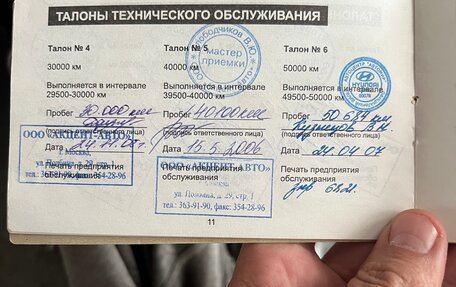 ТАЛОНЫ ТЕХНИЧЕСКОГО ОБСЛУЖИВАНИЯ
Талон № 4
30000 км
Выполняется в интервале
29500-30000 км
Пробег 30 000 км
(подпись ответственного лица)
Дата
Печать предприятия
обслуживания
ООО «АКЦЕНТ-АВТО»
г. Москва,
ул. Поляны, д. 29, стр. 1
тел.: 363-91-90, факс: 354-28-96
Талон № 5
40000 км
Выполняется в интервале
39500-40500 км
Пробег 40100 км
(подпись ответственного лица)
Дата 15.5.2006
Печать предприятия
обслуживания
Слободчиков В.Ю.
мастер
приемки
ООО «АКЦЕНТ-АВТО»
г. Москва,
ул. Поляны, д. 29, стр. 1
тел.: 363-91-90, факс: 354-28-96
Талон № 6
50000 км
Выполняется в интервале
49500-50500 км
Пробег 50 689 км
Кузнецов В.И.
(подпись ответственного лица)
Дата 21.04.07
Печать предприятия
обслуживания
HYUNDAI
11